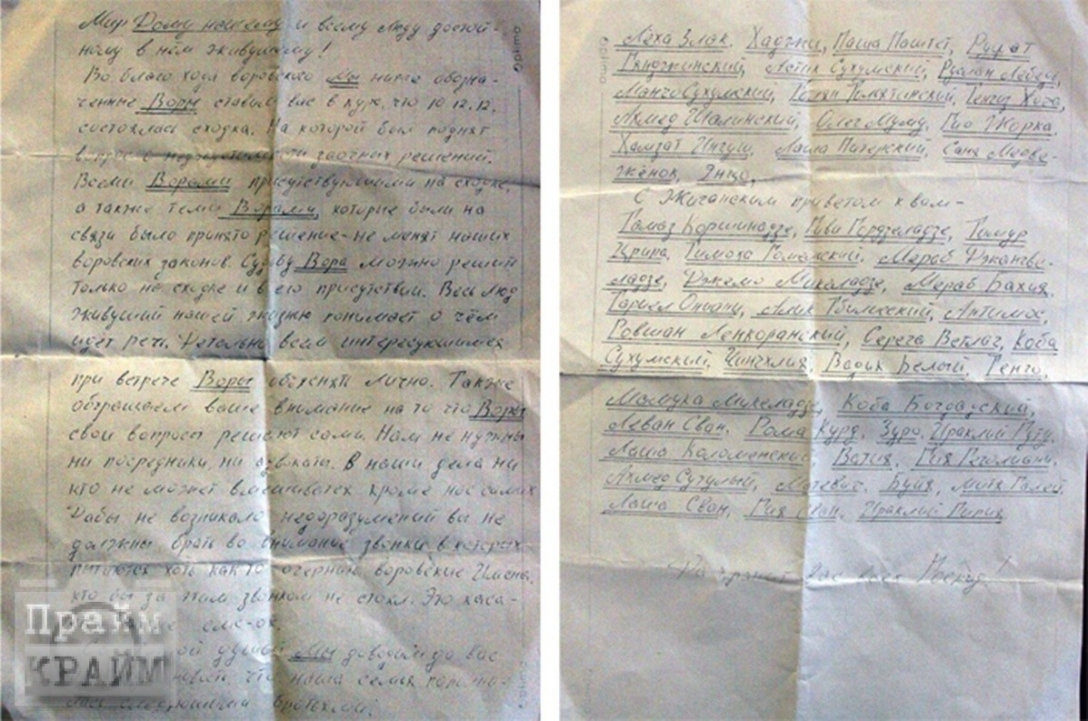 Мир Дому нашему и всему люду достой-
ному в нём живущему!
Во благо хода воровского Мы ниже обозна-
ченные Воры ставим вас в курс, что 10.12.12.
состоялась сходка. На которой был поднят
вопрос о недопустимости заочных решений.
Всеми Ворами присутствующими на сходке,
а также теми Ворами, которые были на
связи было принято решение - не менят наших
воровских законов. Судьбу Вора можно решит
только на сходке и в его присутствии. Весь люд
живущий нашей жизнью понимает о чём
идёт речь. Детально всем интересующимся
при встрече Воры обяснят лично. Также
обращаем ваше внимание на то что Воры
свои вопросы решают сами. Нам не нужны
ни посредники, ни адвокаты. В наши дела ни
кто не может вмешиватся кроме нас самих
Дабы не возникало недоразумений вы не
должны брать во внимание звонки в которых
пытаются хоть как то очернит воровские Имена,
кто бы за этим звонком не стоял. Это каса-
смс-ок.
Мы доводим до вас
что наша семья попол-
братьями.
Прайм
КРАЙМ
Лёха Злак, Хаджи, Паша Паштет, Руфат
Гянджинский, Астик Сухумский, Руслан Лебедь,
Манчо Сухумский, Тенгиз Хоба,
Ахмед Шалинский, Олег Муму, Гио Жорка,
Хамзат Ингуш, Лаша Питерский, Саня Медве-
жёнок, Янцо,
С Жиганским приветом к вам-
Тамаз Коршинадзе, Гиви Горделадзе, Тимур
Цмира, Тимоха Гомельский, Мераб Джангве-
ладзе, Джемо Микеладзе, Мераб Бахия,
Тариел Ониани, Алик Тбилисский, Антимос,
Ровшан Ленкоранский, Серёга Ветлаг, Коба
Сухумский, Чинчлия, Вадик Белый, Тенго,
Мамука Микеладзе, Коба Богдадский,
Леван Сван, Рома Курд, Зуро, Ираклий Руту,
Лаша Коломенский, Вахия, Гия
Ахмед Сутулый, Мацевич, Буйя, Митя Галей,
Лаша Сван, Гия Сван, Ираклий Пипия
вас всех